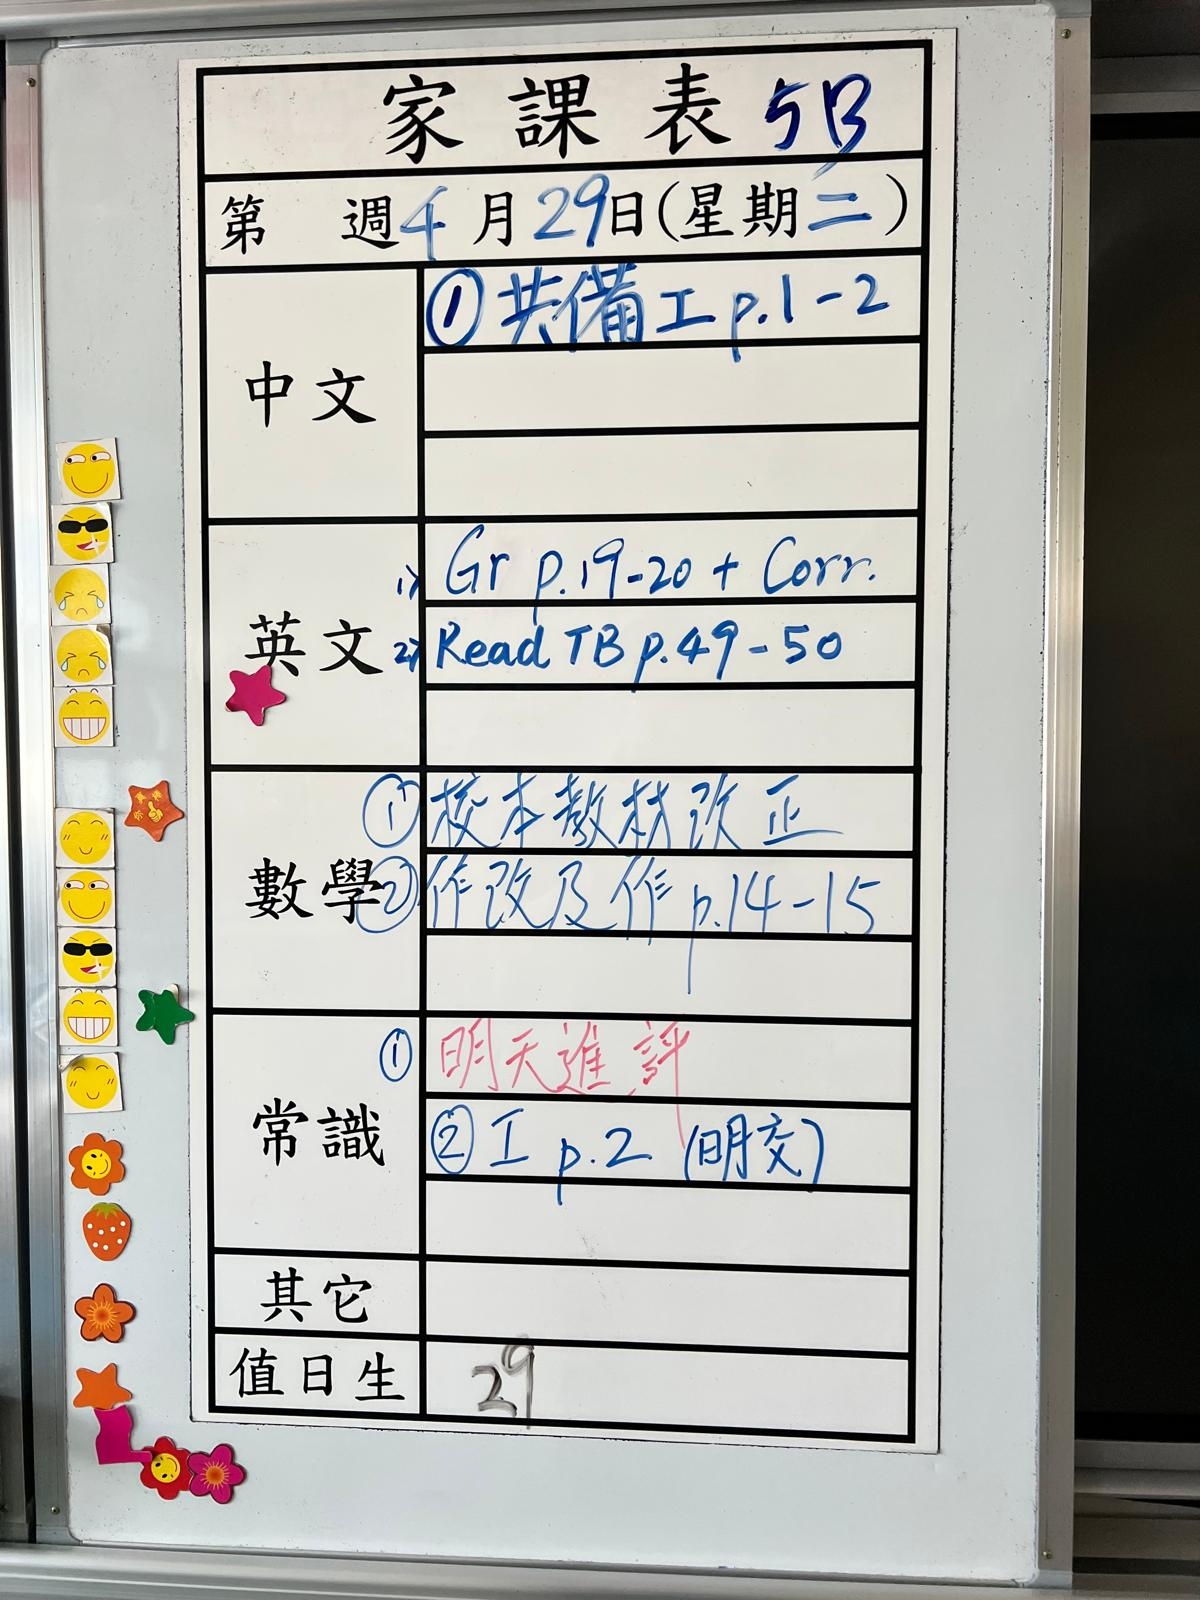 家課表 5B
第 週 4月29日(星期二)
中文
① 共備工 p.1-2
英文
1) Gr p.19-20 + Corr.
2) Read TB p.49-50
數學
① 校本教材改正
② 作改及作 p.14-15
常識
① 明天進評
② 工 p.2 (明交)
其它
值日生
29